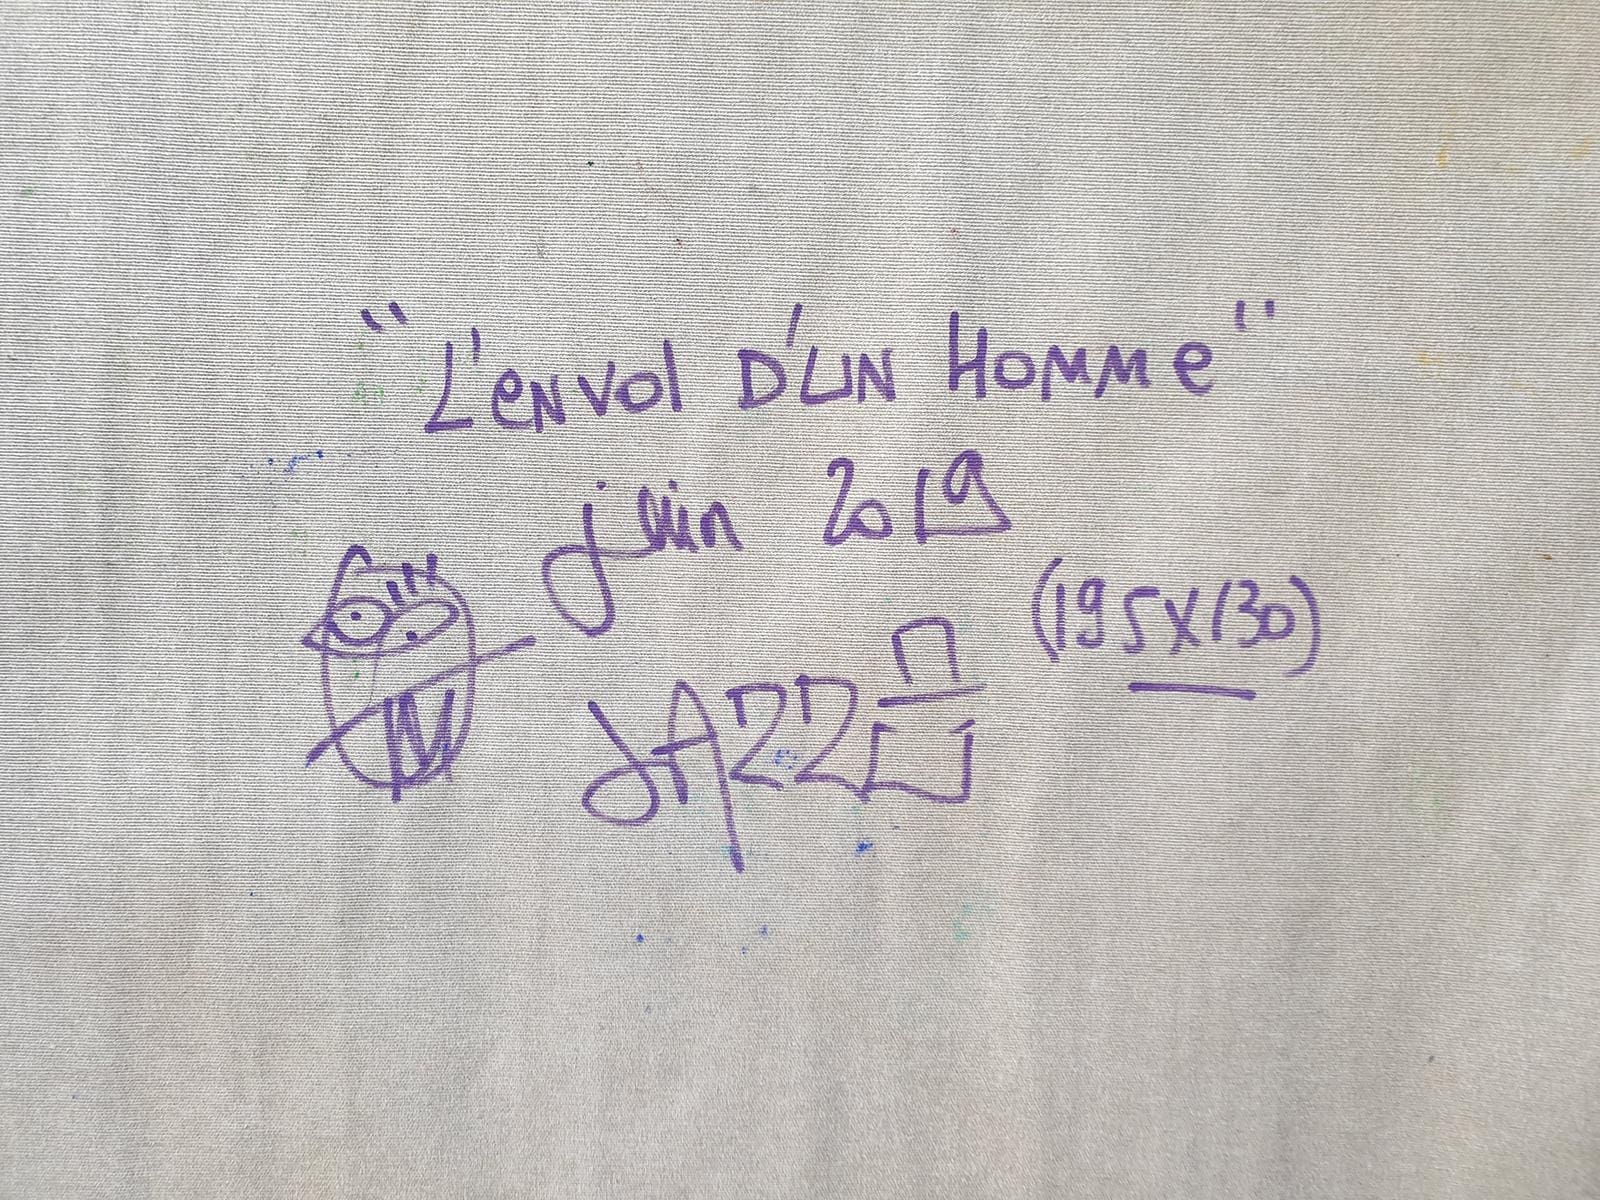 "L'envol D'UN Homme"
juin 2019
(195x130)